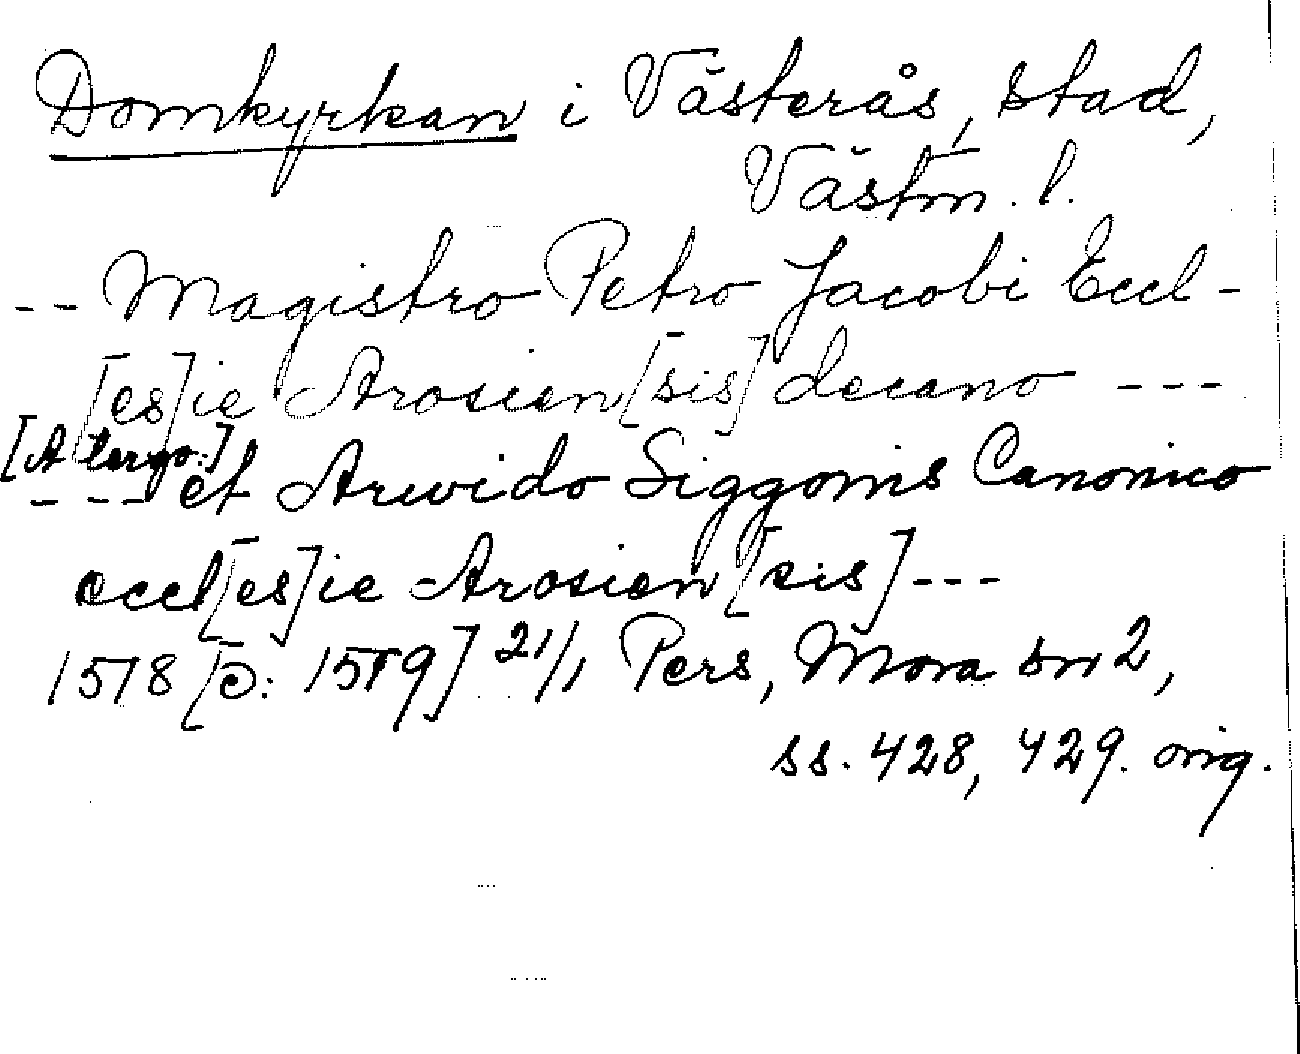 Domkyrkan i Västerås, stad,
Västm. l.
-- Magistro Petro Jacobi Eccl-
[es]ie Arosien[sis] decano ---
[A tergo:]
--- et Arwido Siggonis Canonico
eccl[es]ie Arosien[sis] ---
1518 [ɔ: 1519] 21/1 Pers, Mora sn 2,
ss. 428, 429. orig.